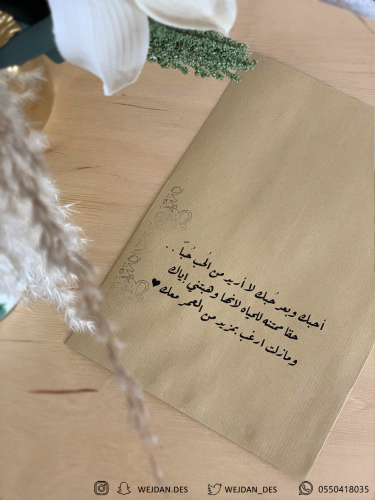 أحبك وبعد حُبك لا أريد من الحب حُبًا . .
حقا ممتنه للحياه لانها وهبتني إياك
ومازلت ارغب بمزيد من العمر معك♥
WEJDAN.DES WEJDAN_DES 0550418035